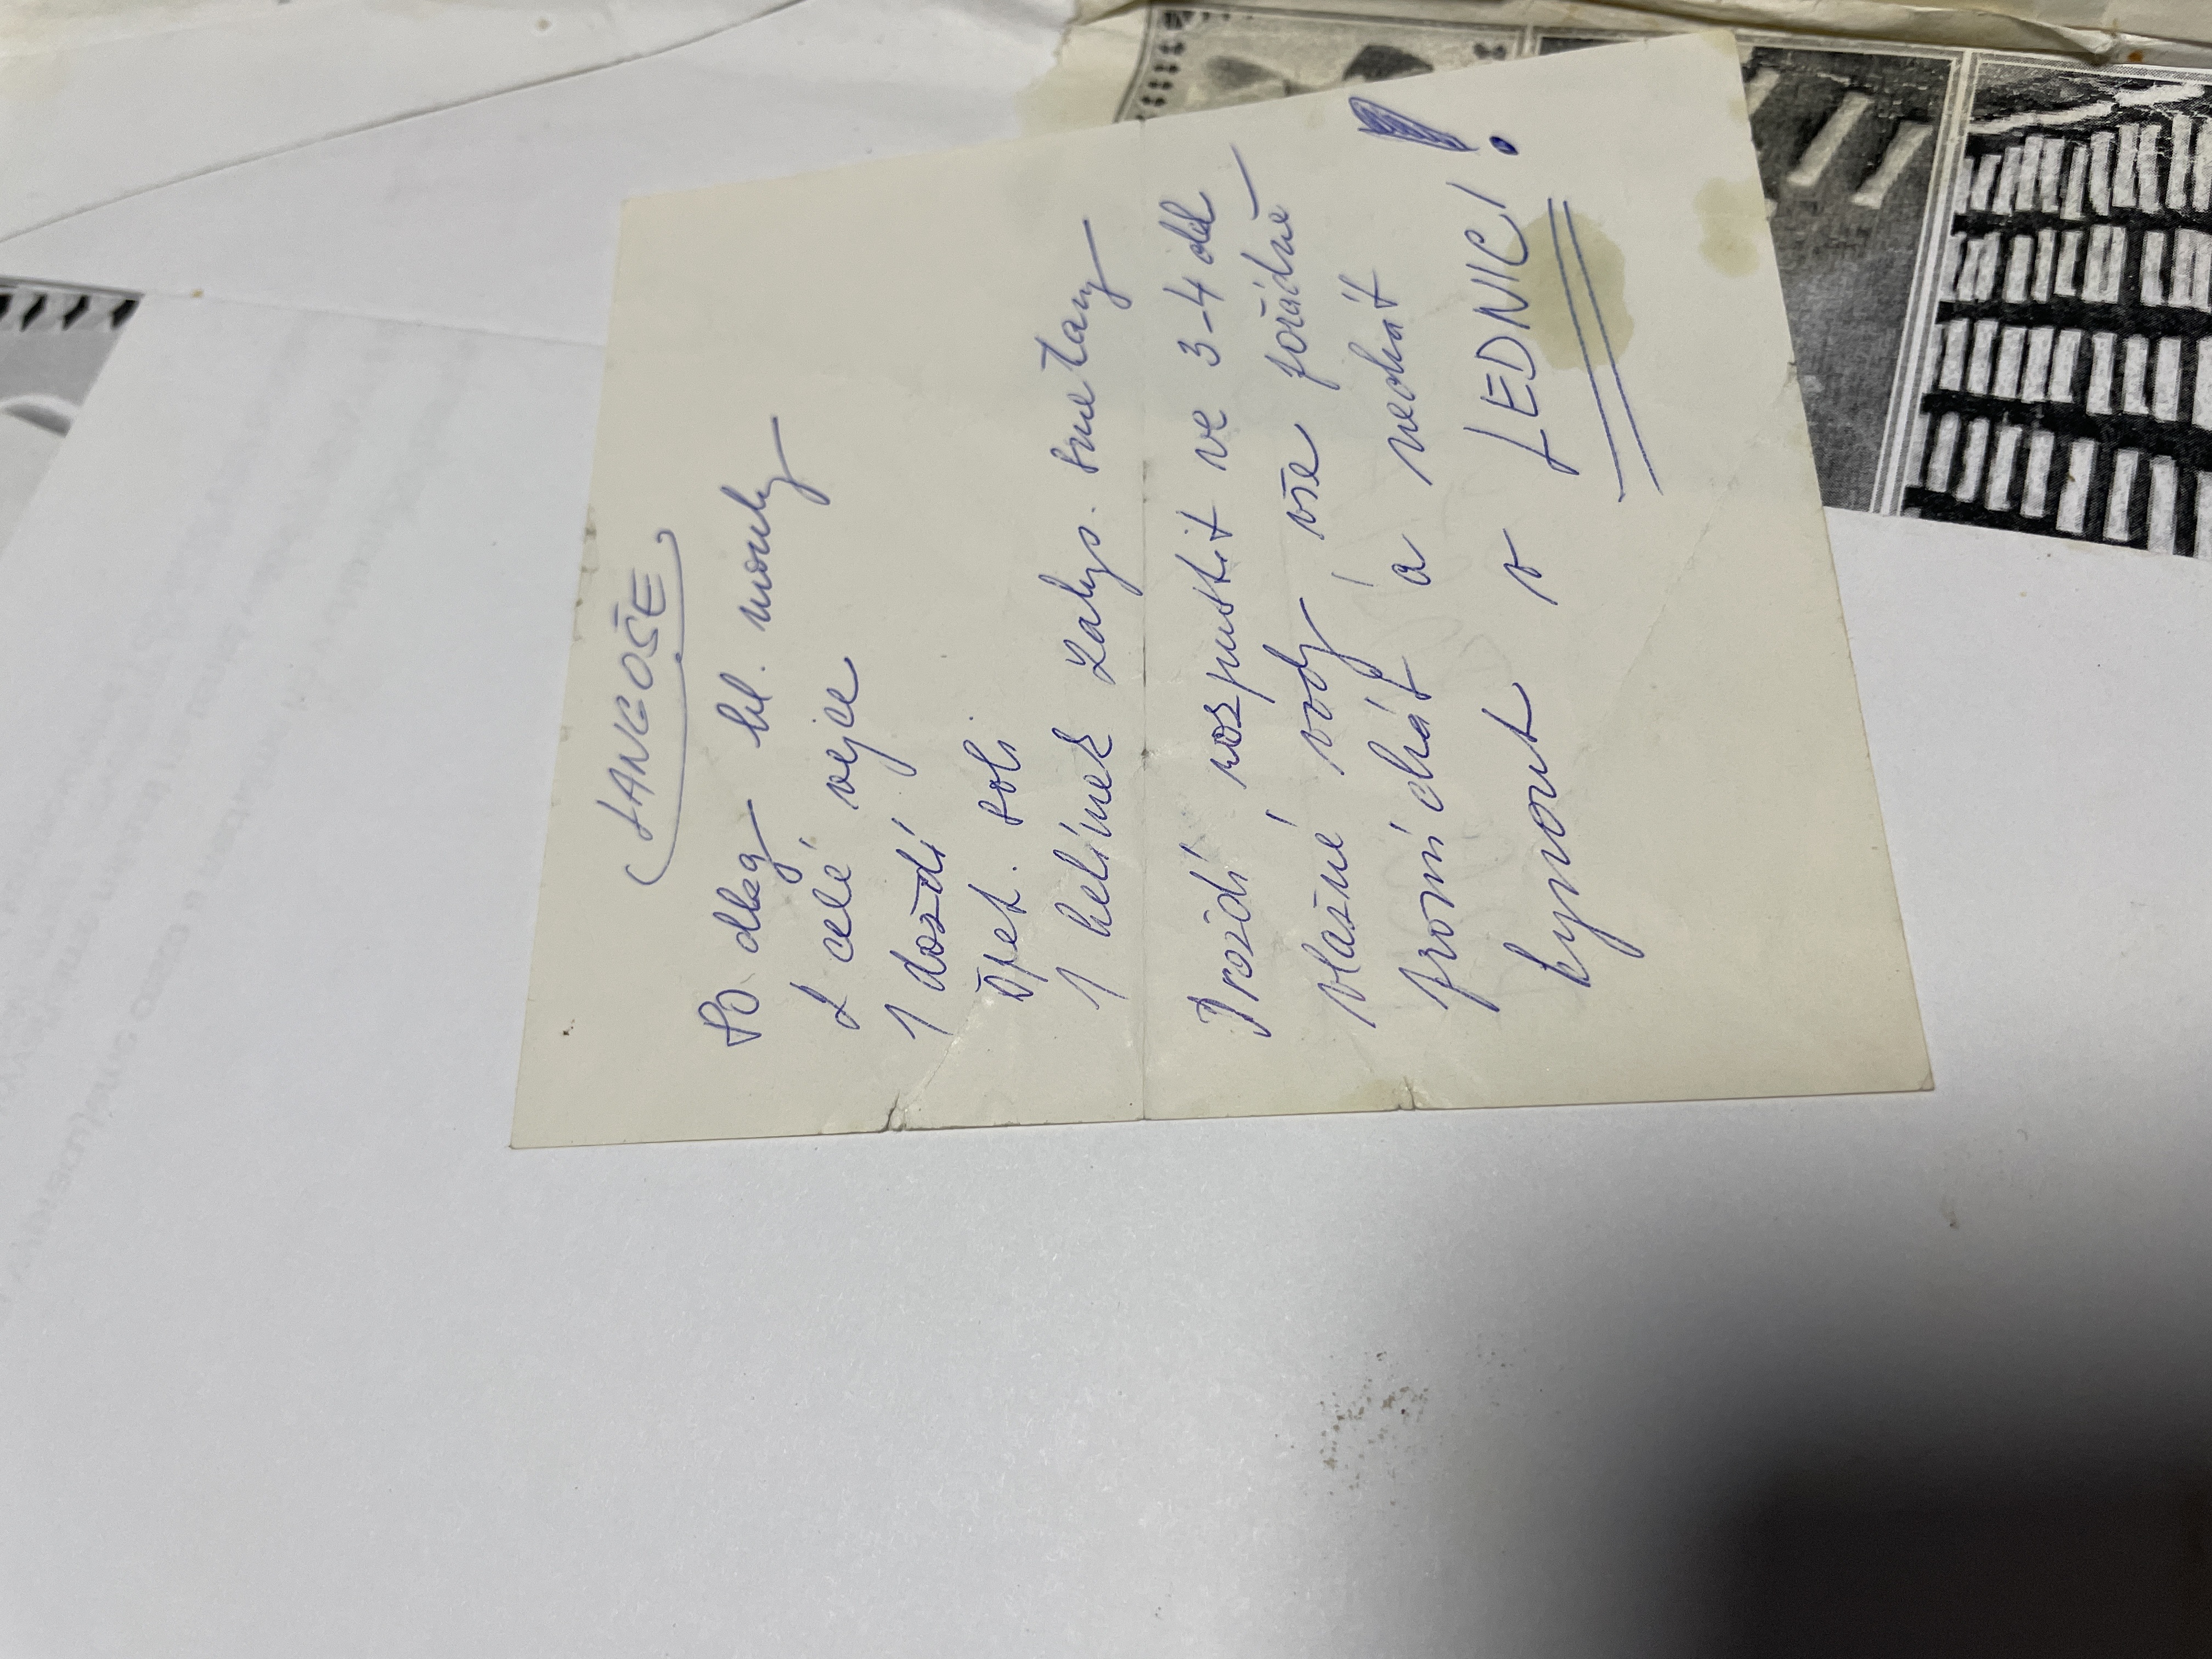 LANGOŠE
80 dkg hl. mouky
2 celé vejce
1 doždí
špet. soli
1 kelímek zakys. smetany
Droždí rozpustit ve 3-4 dcl
vlažné vody, vše pořádně
promíchát a nechát
kynout v LEDNICI!